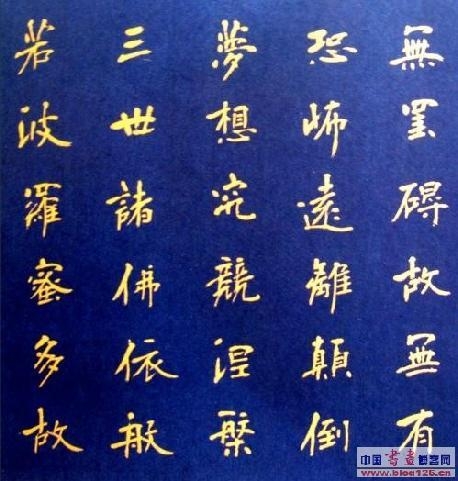 無罣碍故無有
恐怖遠離顛倒
夢想究競涅槃
三世諸佛依般
若波羅蜜多故
中国書畫博客网